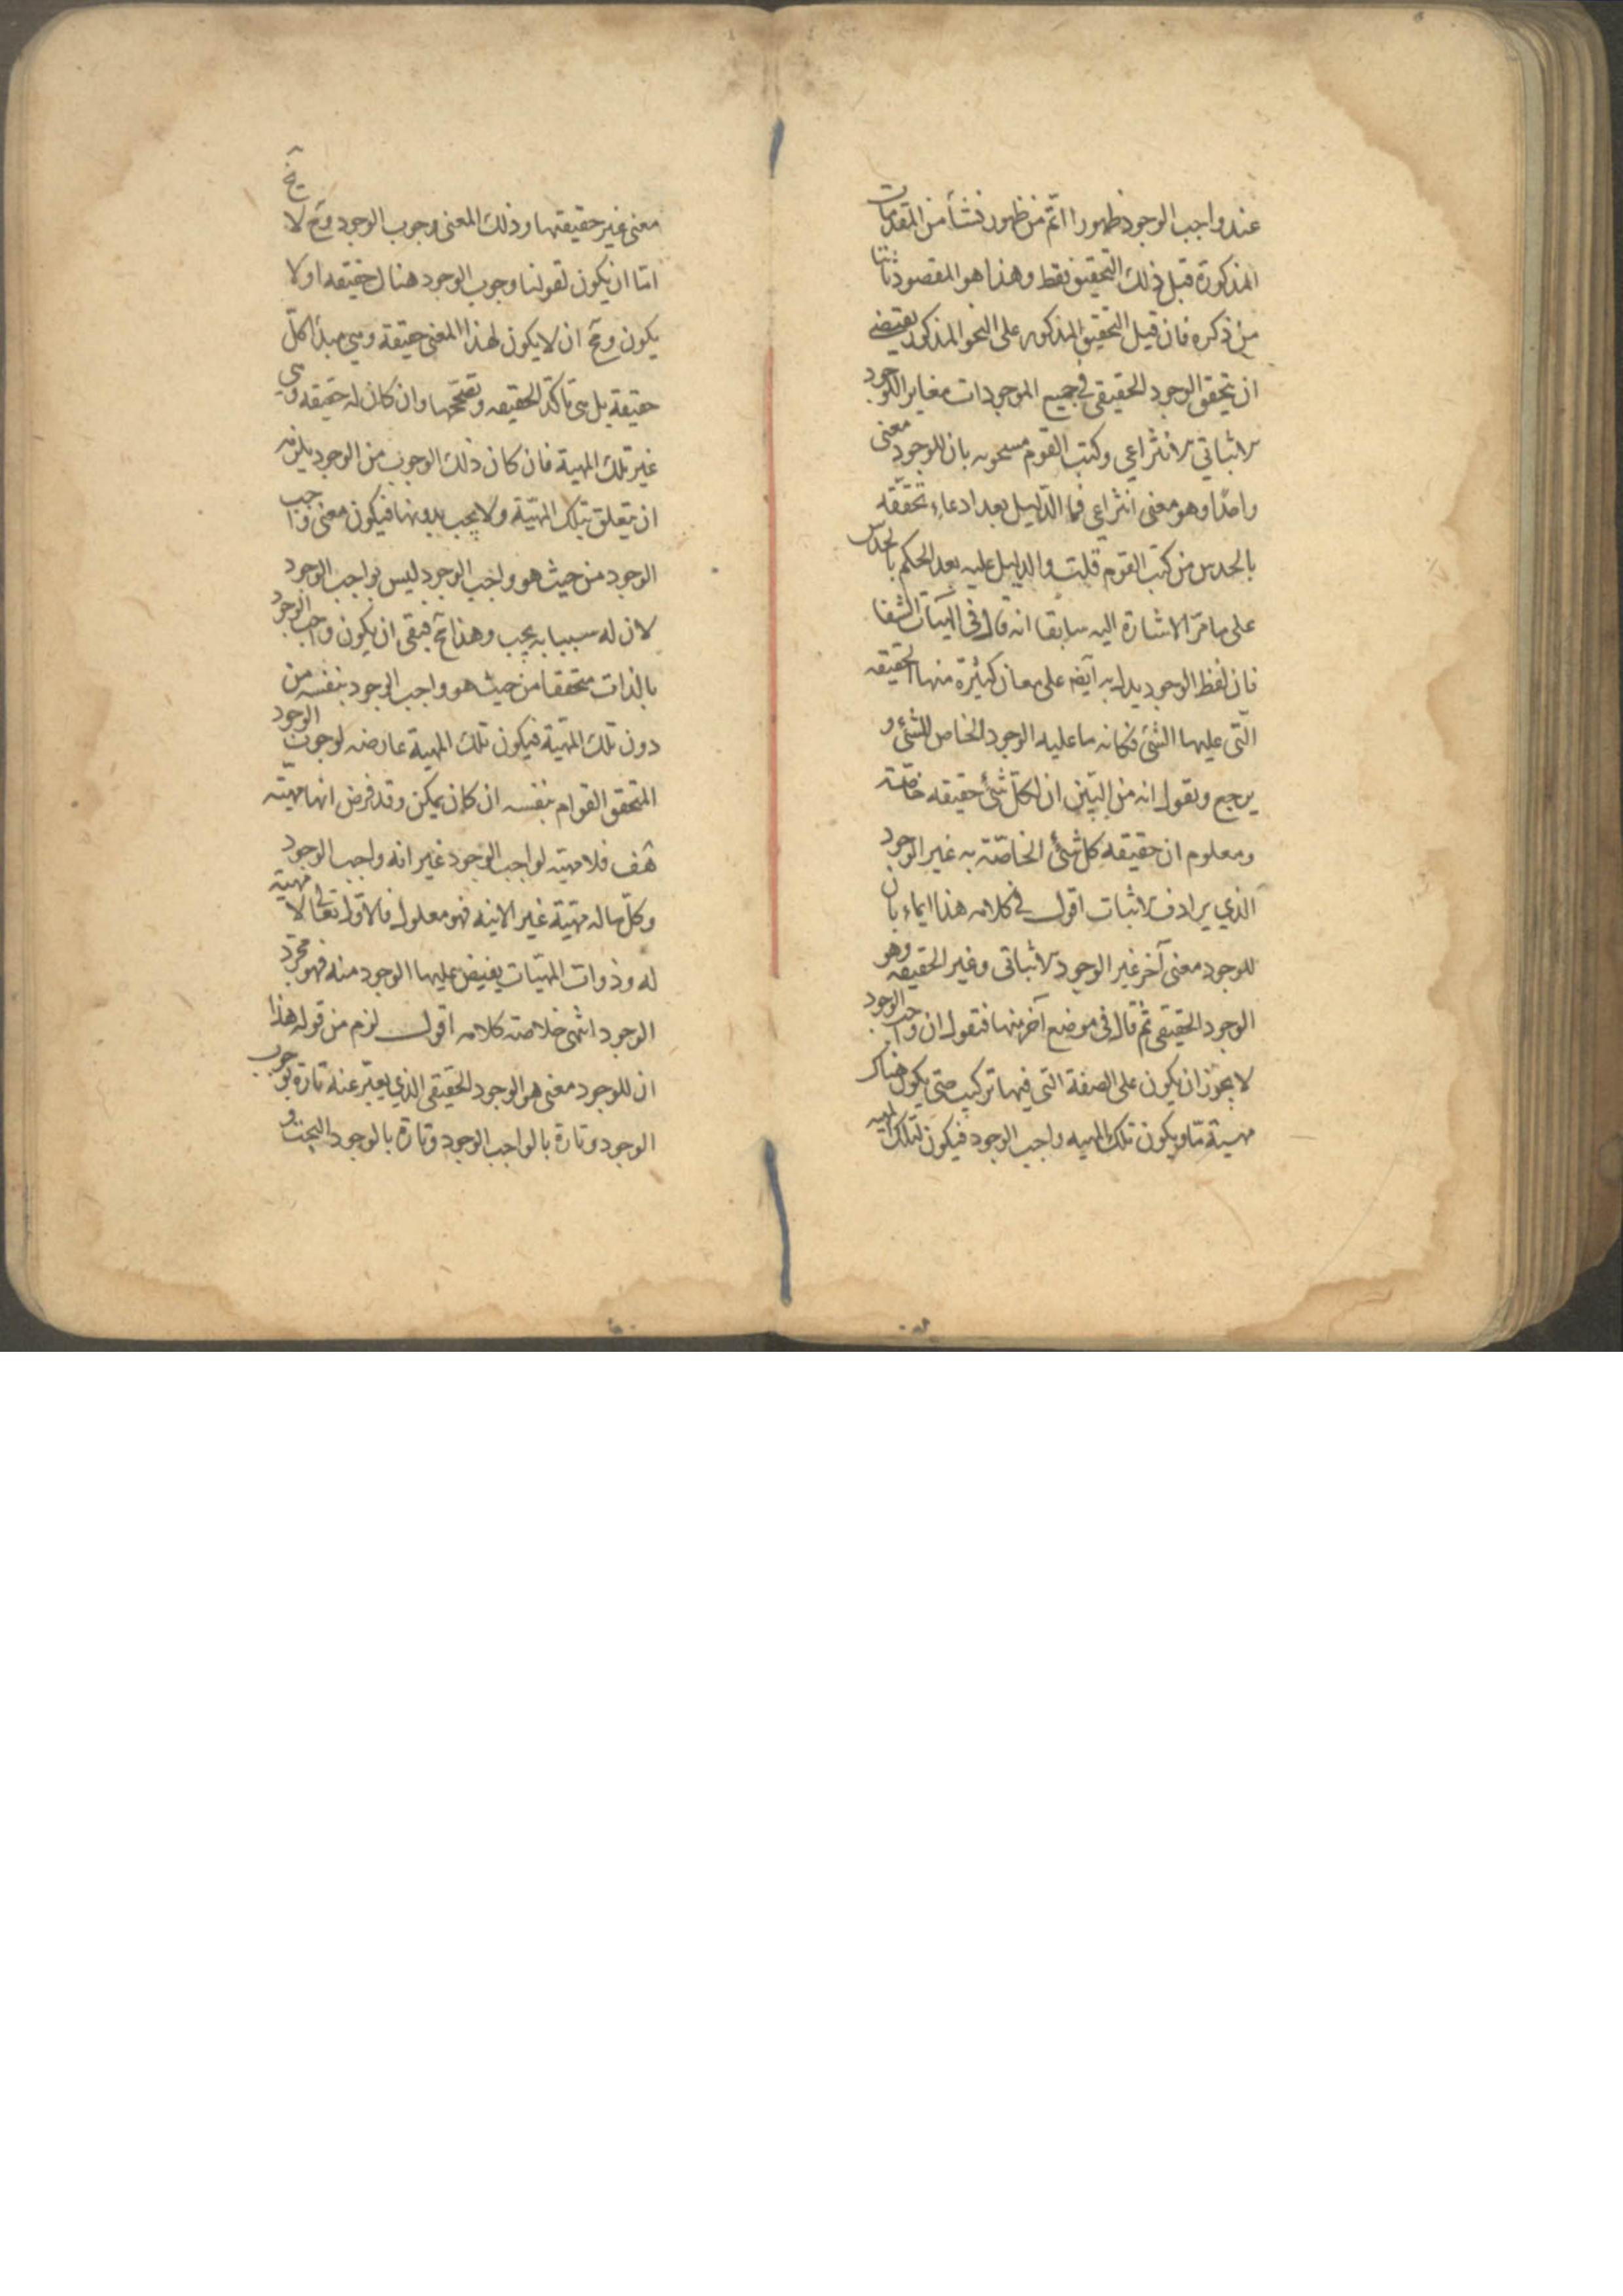 عند واجب الوجود ظهورا اتم من ظهور نشأ من المقدمات
المذكورة قبل ذلك التحقيق فقط وهذا هو المقصود ثانيا
من ذكره فان قيل التحقيق المذكور على النحو المذكور يقتضي
ان يتحقق الوجود الحقيقي في جميع الموجودات مغاير الوجود
الاثباتي الانتزاعي وكتب القوم مشحونه بان للوجود معنى
واحدا وهو معنى انتزاعي فما الدليل بعد ادعاء تحققه
بالحدس من كتب القوم قلت والدليل عليه بعد الحكم بالحدس
على ما مر الاشارة اليه سابقا انه قال في الهيات الشفا
فان لفظ الوجود يدل به ايضا على معان كثيرة منها الحقيقه
التي عليها الشئ فكانه ما عليه الوجود الخاص للشئ و
يرجع ويقول انه من البين ان لكل شئ حقيقه خاصة
ومعلوم ان حقيقه كل شئ الخاصة به غير الوجود
الذي يرادف الاثبات اقول في كلامه هذا ايماء بان
للوجود معنى آخر غير الوجود الاثباتى وغير الحقيقه وهو
الوجود الحقيقي ثم قال في موضع آخر منها فنقول ان واجب الوجود
لا يجوز ان يكون على الصفة التي فيها تركيب حتى يكون هناك
مهية ما ويكون تلك المهيه واجب الوجود فيكون لتلك المهيه
معنى غير حقيقتها وذلك المعنى وجوب الوجود وح لا يخ
اما ان يكون لقولنا وجوب الوجود هناك حقيقه اولا
يكون ومح ان لا يكون لهذا المعنى حقيقة وهي مبدأ كل
حقيقة بل هي تأكد الحقيقه وتصححها وان كان له حقيقه وهي
غير تلك المهية فان كان ذلك الوجوب من الوجود يلزمه
ان يتعلق بتلك المهية ولا يجب بدونها فيكون معنى واجب
الوجود من حيث هو واجب الوجود ليس بواجب الوجود
لان له سببا به يجب وهذا مح فبقى ان يكون واجب الوجود
بالذات متحققا من حيث هو واجب الوجود بنفسه من
دون تلك المهية فيكون تلك المهية عارضه لوجوب الوجود
المتحقق القوام بنفسه ان كان يمكن وقد فرض انها مهيته
هف فلا مهية لواجب الوجود غير انه واجب الوجود
وكل ماله مهية غير الانيه فهو معلول فالاول تعالى لا مهية
له وذوات المهيات يفيض عليها الوجود منه فهو مجرد
الوجود انتهى خلاصة كلامه اقول لزم من قوله هذا
ان للوجود معنى هو الوجود الحقيقي الذي يعبر عنه تارة بوجوب
الوجود وتارة بالواجب الوجود وتارة بالوجود البحت و